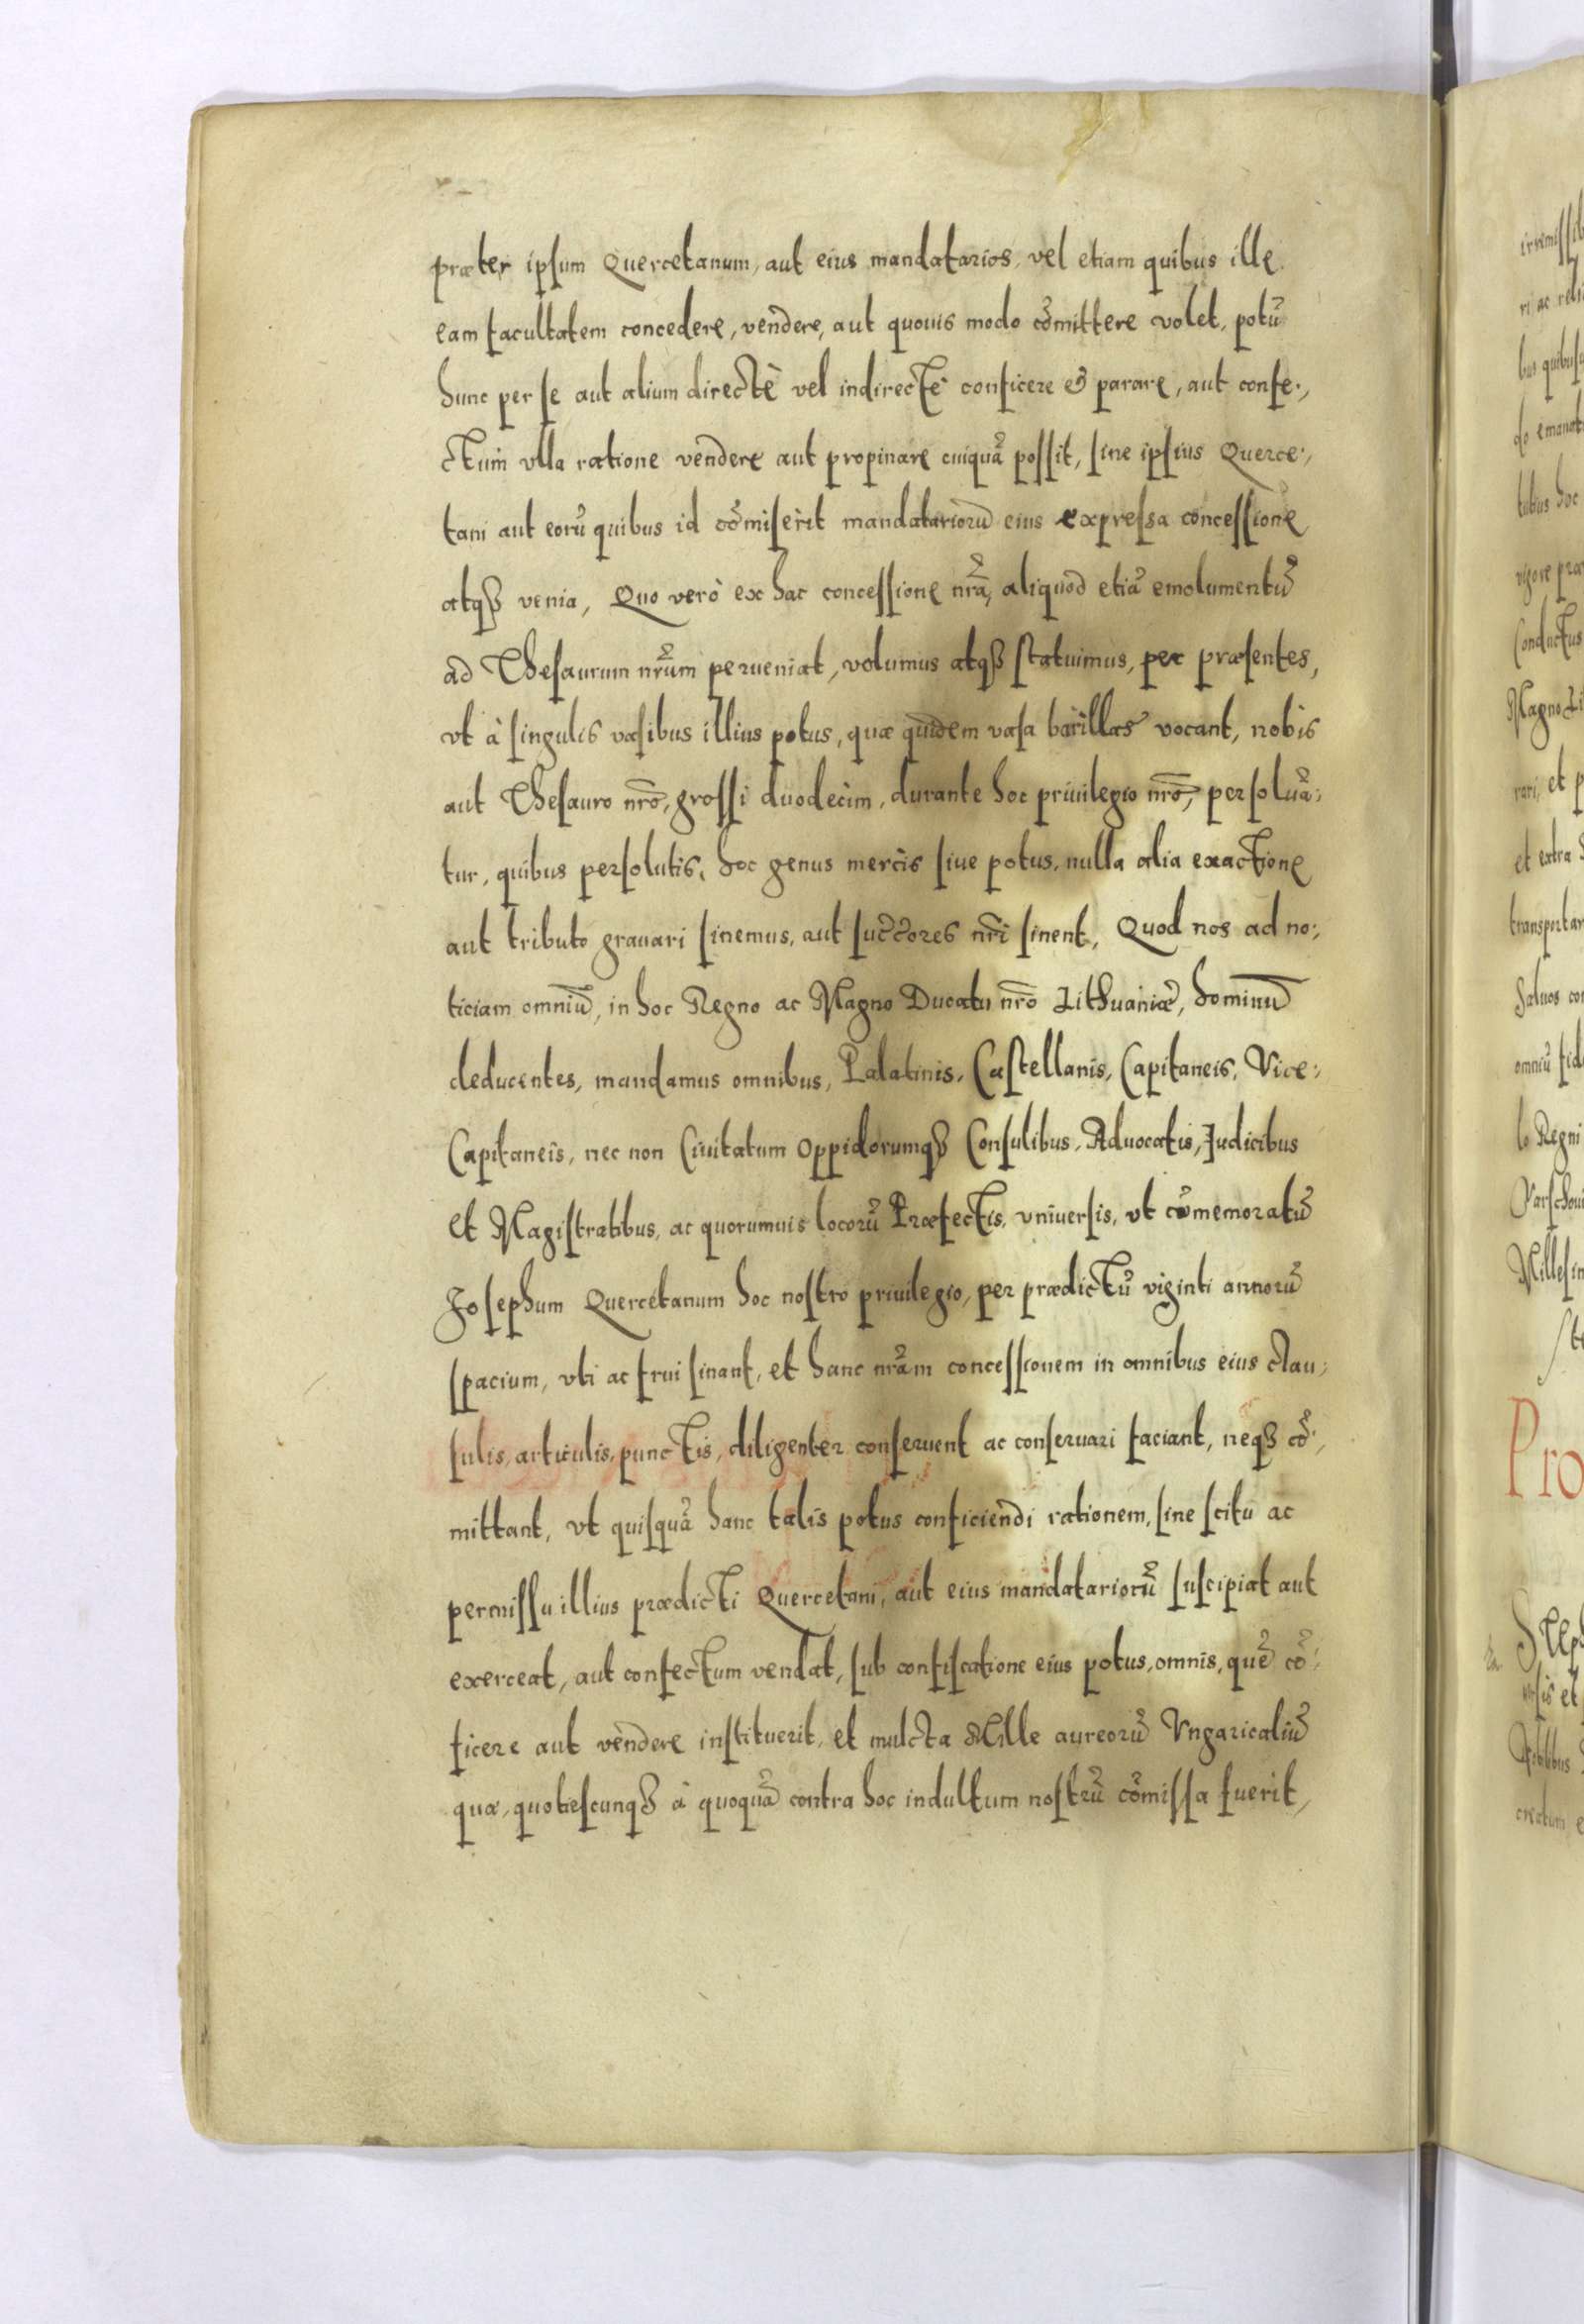 præter ipsum Quercetanum, aut eius mandatarios, vel etiam quibus ille
eam facultatem concedere, vendere, aut quouis modo cõmittere volet, potũ
hunc per se aut alium directè vel indirectè conficere & parare, aut confe:,
ctum vlla ratione vendere aut propinare cuiquã possit, sine ipsius Querce:,
tani aut eorũ quibus id cõmiserit mandatariorũ eius expressa concessione
atqꝫ venia, Quo verò ex hac concessione nrã, aliquod etiã emolumentũ
ad Thesaurum nrũm perueniat, volumus atqꝫ statuimus, per præsentes,
vt à singulis vasibus illius potus, quæ quidem vasa barillas vocant, nobis
aut Thesauro nrõ, grossi duodecim, durante hoc priuilegio nrõ, persoluã:
tur, quibus persolutis, hoc genus mercis siue potus, nulla alia exactione
aut tributo grauari sinemus, aut succ̃ores nrĩ sinent, Quod nos ad no:,
ticiam omniũ, in hoc Regno ac Magno Ducatu nrõ Lithuaniæ, hominũ
deducentes, mandamus omnibus, Palatinis, Castellanis, Capitaneis, Vice:
Capitaneis, nec non Ciuitatum Oppidorumqꝫ Consulibus, Aduocatis, Judicibus
et Magistratibus, ac quorumuis locorũ Præfectis, vniuersis, vt cõmemoratũ
Josephum Quercetanum hoc nostro priuilegio, per prædictũ viginti annorũ
spacium, vti ac frui sinant, et hanc nrãm concessionem in omnibus eius clau:
sulis, articulis, punctis, diligenter conseruent ac conseruari faciant, neqꝫ cõ:,
mittant, vt quisquã hanc talis potus conficiendi rationem, sine scitu ac
permissu illius prædicti Quercetani, aut eius mandatariorũ suscipiat aut
exerceat, aut confectum vendat, sub confiscatione eius potus, omnis, quẽ cõ:
ficere aut vendere instituerit, et mulcta Mille aureorũ Vngaricaliũ
quæ, quotiescunqꝫ à quoquã contra hoc indultum nostrũ cõmissa fuerit,